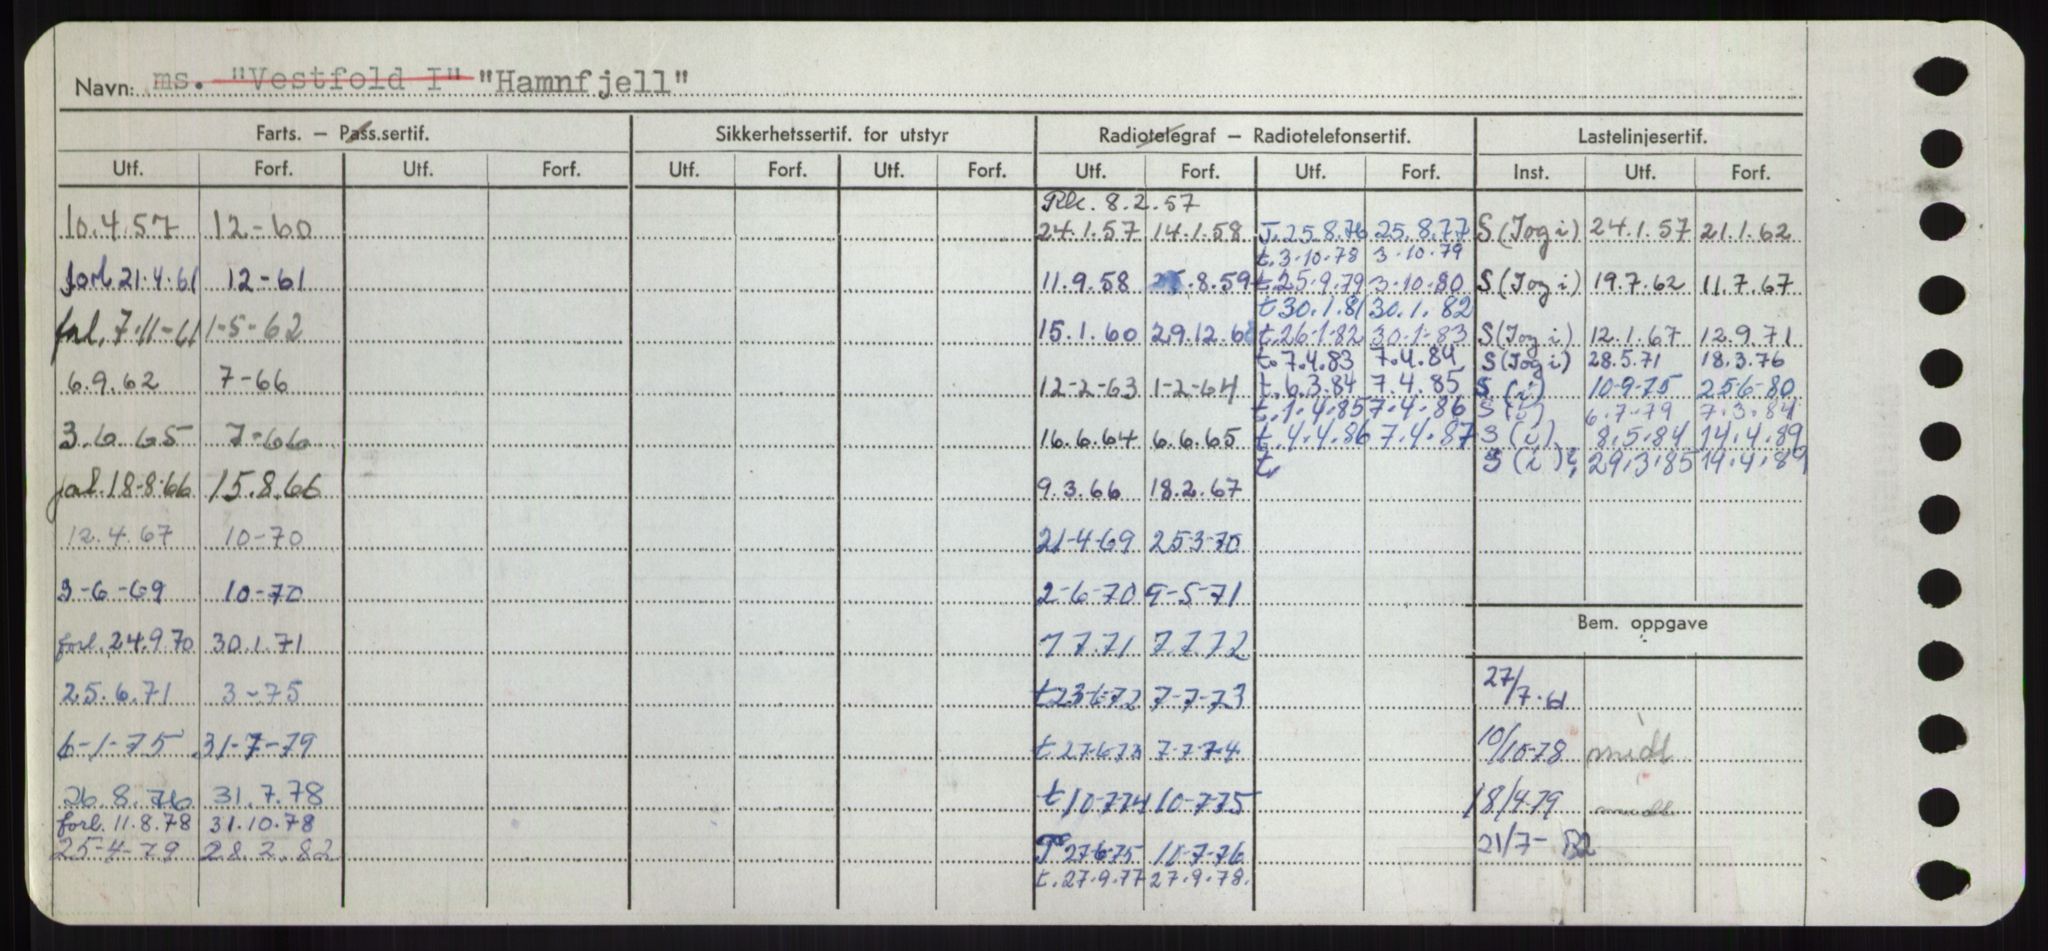 Navn: ms. "Vestfold I" "Hamnfjell"
Farts. – Pass.sertif. Sikkerhetssertif. for utstyr Radiotelegraf – Radiotelefonsertif. Lastelinjesertif.
Utf. Forf. Utf. Forf. Utf. Forf. Utf. Forf. Utf. Forf. Utf. Forf. Inst. Utf. Forf.
Rk. 8.2.57
10.4.57 12-60 24.1.57 14.1.58 T.25.8.76 25.8.77 S (Jog i) 24.1.57 21.1.62
t.3-10-78 3-10-79
forl 21.4.61 12-61 11.9.58 .8.59 t.25.9.79 3-10-80 S (Jog i) 19.7.62 11.7.67
t 30.1.81 30.1.82
7-11-61 1-5-62 15.1.60 29.12.60 t.26-1-82 30-1-83 S (Jog i) 12.1.67 12.9.71
t.7.4.83 7.4.84 S (Jog i) 28.5.71 18.3.76
6.9.62 7-66 12-2-63 1-2-64 t.6.3.84 7.4.85 S (i) 10-9-75 256-80
t.1.4.85 7.4.86 S (i) 6.7-79 7.3.84
3.6.65 7-66 16.6.64 6.6.65 t.4.4.86 7.4.87 S (i) 8.5.84 14.4.89
t. S (i) 29.3.85 14.4.89
18-8-66 15.8.66 9.3.66 18.2.67
12.4.67 10-70 21-4-69 25-3-70
9-6-69 10-70 2-6-70 9-5-71
Bem. oppgave
forl. 24.9.70 30.1.71 7.7.71 7.7.72
27/7.61
25.6.71 3-75 t 23-6-72 7-7-73
6-1-75 31-7-79 t 27-6-73 7-7-74 10/10-78 midl
26.8.76 31.7.78 t 10-7-74 10-7-75 18/4-79 midl
forl. 11.8.78 31.10.78
25-4-79 28.2.82 T 27-6-75 10-7-76 21/7- 82
t.27.9.77 27.9.78.